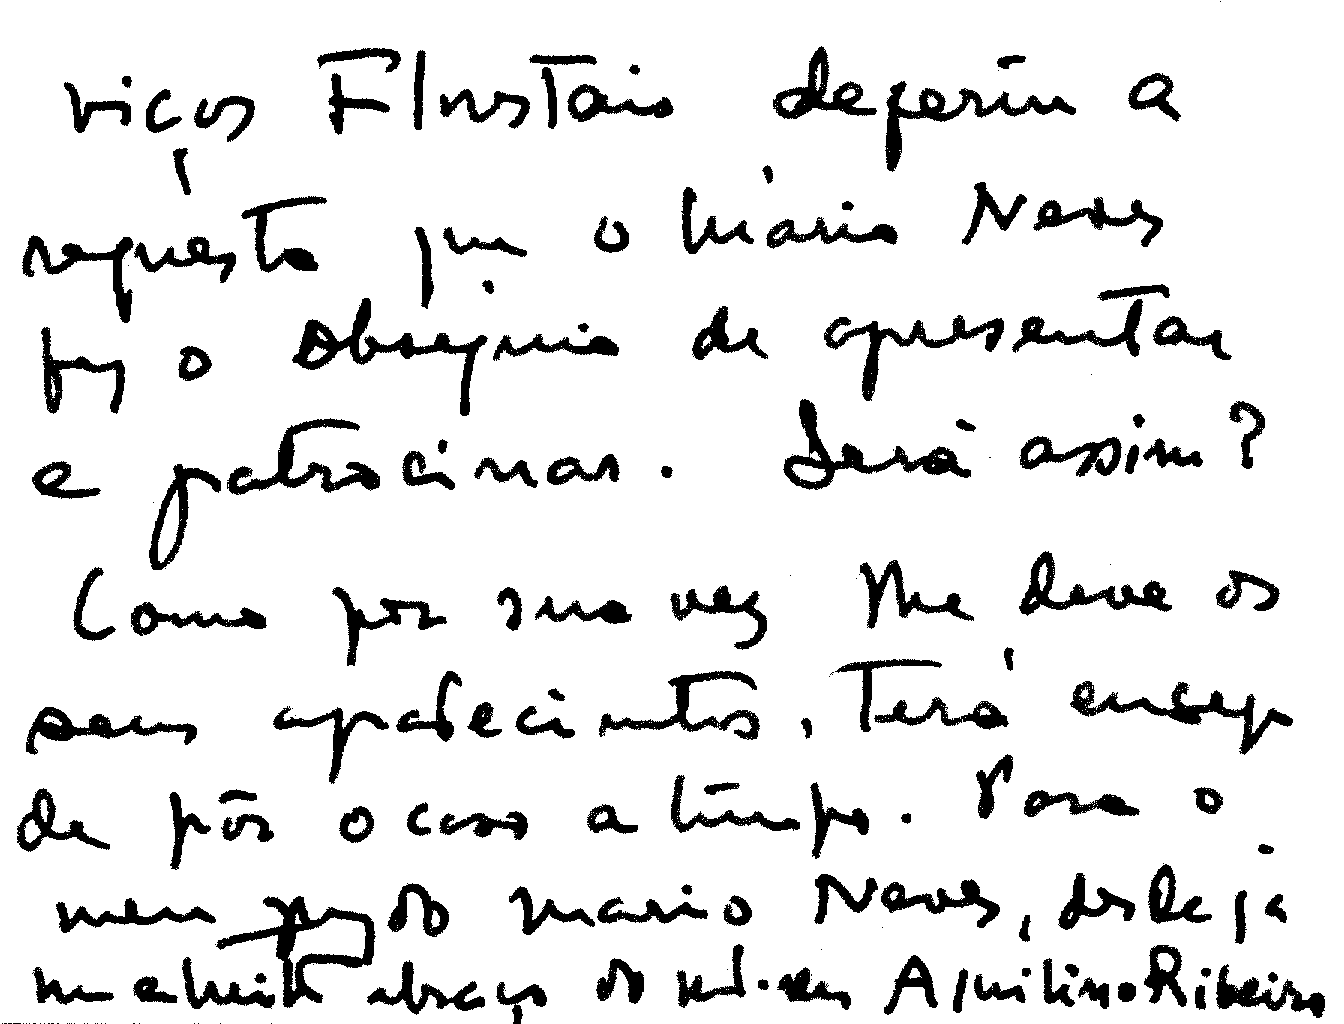 viços Florestais deferir a
requesta que o Mário Neves
fez o obséquio de apresentar
e patrocinar. Será assim?
Como por sua vez me deve os
seus apadecimentos, Terá ensejo
de pôr o caso a tempo. Para o
meu do Mario Neves, desde já
um abraço do Aquilino Ribeiro